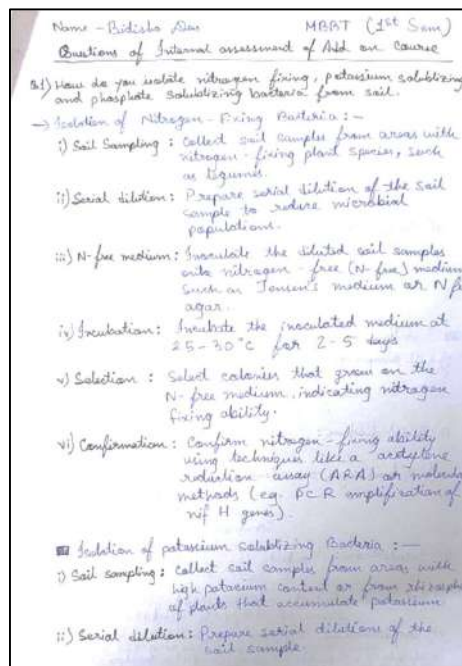 Name - Bidisha Das MBBT (1st Sem)
Questions of Internal assessment of Add on course
Q1) How do you isolate nitrogen fixing, potassium solublizing
and phosphate solublizing bacteria from soil.
→ Isolation of Nitrogen - Fixing Bacteria :-
i) Soil Sampling : Collect soil samples from areas with
nitrogen - fixing plant species, such
as legumes.
ii) Serial dilution : Prepare serial dilution of the soil
sample to reduce microbial
populations.
iii) N-free medium : Inoculate the diluted soil samples
onto nitrogen - free (N-free) medium
such as Jensen's medium or N fr
agar.
iv) Incubation : Incubate the inoculated medium at
25-30°C for 2-5 days
v) Selection : Select colonies that grow on the
N-free medium, indicating nitrogen
fixing ability.
vi) Confirmation : Confirm nitrogen-fixing ability
using techniques like a acetylene
reduction assay (ARA) or molecul
methods (eg. PCR amplification of
nif H genes).
Isolation of potassium solublizing Bacteria :-
i) Soil sampling : Collect soil samples from areas with
high potassium content or from rhizosph
of plants that accumulate potassium
ii) Serial dilution : Prepare serial dilutions of the
soil sample.